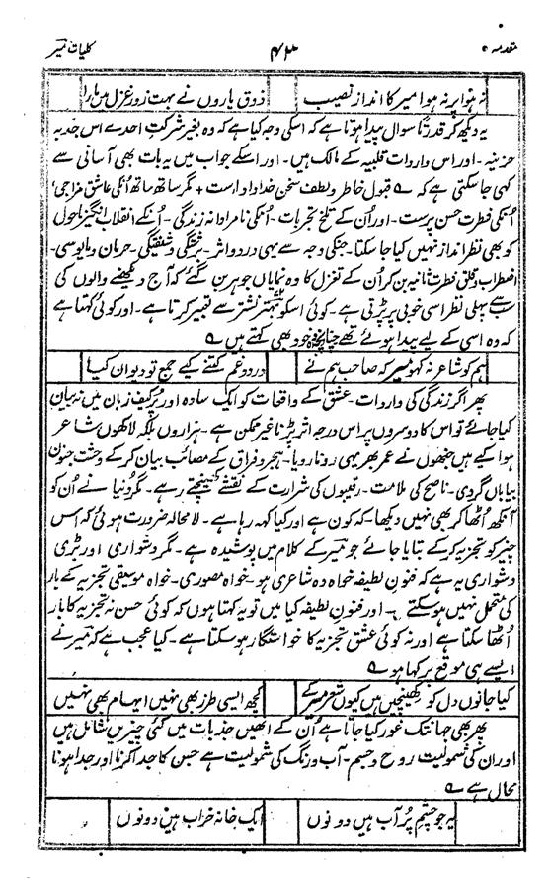 مقدمہ
۴۳
کلیات میر
نہ ہوا پر نہ ہوا میر کا انداز نصیب
ذوق یاروں نے بہت زور غزل میں مارا
یہ دیکھ کر قدرتاً سوال پیدا ہوتا ہے کہ اسکی وجہ کیا ہے کہ وہ بغیر شرکتِ احدے اس جذبہ
حزینہ - اور اس واردات قلبیہ کے مالک ہیں - اور اسکے جواب میں یہ بات بھی آسانی سے
کہی جا سکتی ہے کہ ے قبول خاطر و لطف سخن خداداد است + مگر ساتھ ساتھ اُنکی عاشق مزاجی،
اُنکی فطرت حسن پرست - اور اُن کے تلخ تجربات - اُنکی نامرادانہ زندگی - اُنکے انقلاب انگیز ماحول
کو بھی نظر انداز نہیں کیا جا سکتا - جنکی وجہ سے یہی درد و اثر - برشتگی و شیفتگی - حرمان و مایوسی -
اضطراب و قلق فطرت ثانیہ بن کر اُن کے تغزل کا وہ نمایاں جوہر بن گئے کہ آج دیکھنے والوں کی
سب سے پہلی نظر اسی خوبی پر پڑتی ہے - کوئی اسکو بہتر نشتر سے تعبیر کرتا ہے - اور کوئی کہتا ہے
کہ وہ اسی کے لیے پیدا ہوئے تھے چنانچہ خود بھی کہتے ہیں ے
ہم کو شاعر نہ کہو میر کہ صاحب ہم نے
درد و غم کتنے کیے جمع تو دیوان کیا
پھر اگر زندگی کی واردات - عشق کے واقعات کو ایک سادہ اور پرکیف زبان میں نہ بیان
کیا جائے تو اس کا دوسروں پر اس درجہ اثر پڑنا غیر ممکن ہے - ہزاروں بلکہ لاکھوں شاعر
ہوا کیے ہیں جنھوں نے عمر بھر یہی رونا رویا - ہجر و فراق کے مصائب بیان کر کے وحشت جنون
بیاباں گردی - ناصح کی ملامت - رقیبوں کی شرارت کے نقشے کھینچتے رہے - مگر دنیا نے اُن کو
آنکھ اُٹھا کر بھی نہیں دیکھا کہ کون ہے اور کیا کہہ رہا ہے - لامحالہ ضرورت ہوئی کہ اس
چیز کو تجزیہ کر کے بتایا جائے جو میر کے کلام میں پوشیدہ ہے - مگر دشواری اور بڑی
دشواری یہ ہے کہ فنون لطیفہ خواہ وہ شاعری ہو - خواہ مصوری - خواہ موسیقی تجزیہ کے بار
کی متحمل نہیں ہو سکتے - اور فنون لطیفہ کیا میں تو یہ کہتا ہوں کہ کوئی حسن نہ تجزیہ کا بار
اُٹھا سکتا ہے اور نہ کوئی عشق تجزیہ کا خواستگار ہو سکتا ہے - کیا عجب ہے کہ میر نے
ایسے ہی موقع پر کہا ہو ے
کیا جانوں دل کو کھینچیں ہیں کیوں شعر میر کے
کچھ ایسی طرز بھی نہیں ایہام بھی نہیں
پھر بھی جہانتک غور کیا جاتا ہے اُن کے انھیں جذبات میں کئی چیزیں شامل ہیں
اور ان کی شمولیت روح و جسم - آب و رنگ کی شمولیت ہے جس کا جدا کرنا اور جدا ہونا
محال ہے ے
یہ جو چشم پُر آب ہیں دونوں
ایک خانہ خراب ہیں دونوں